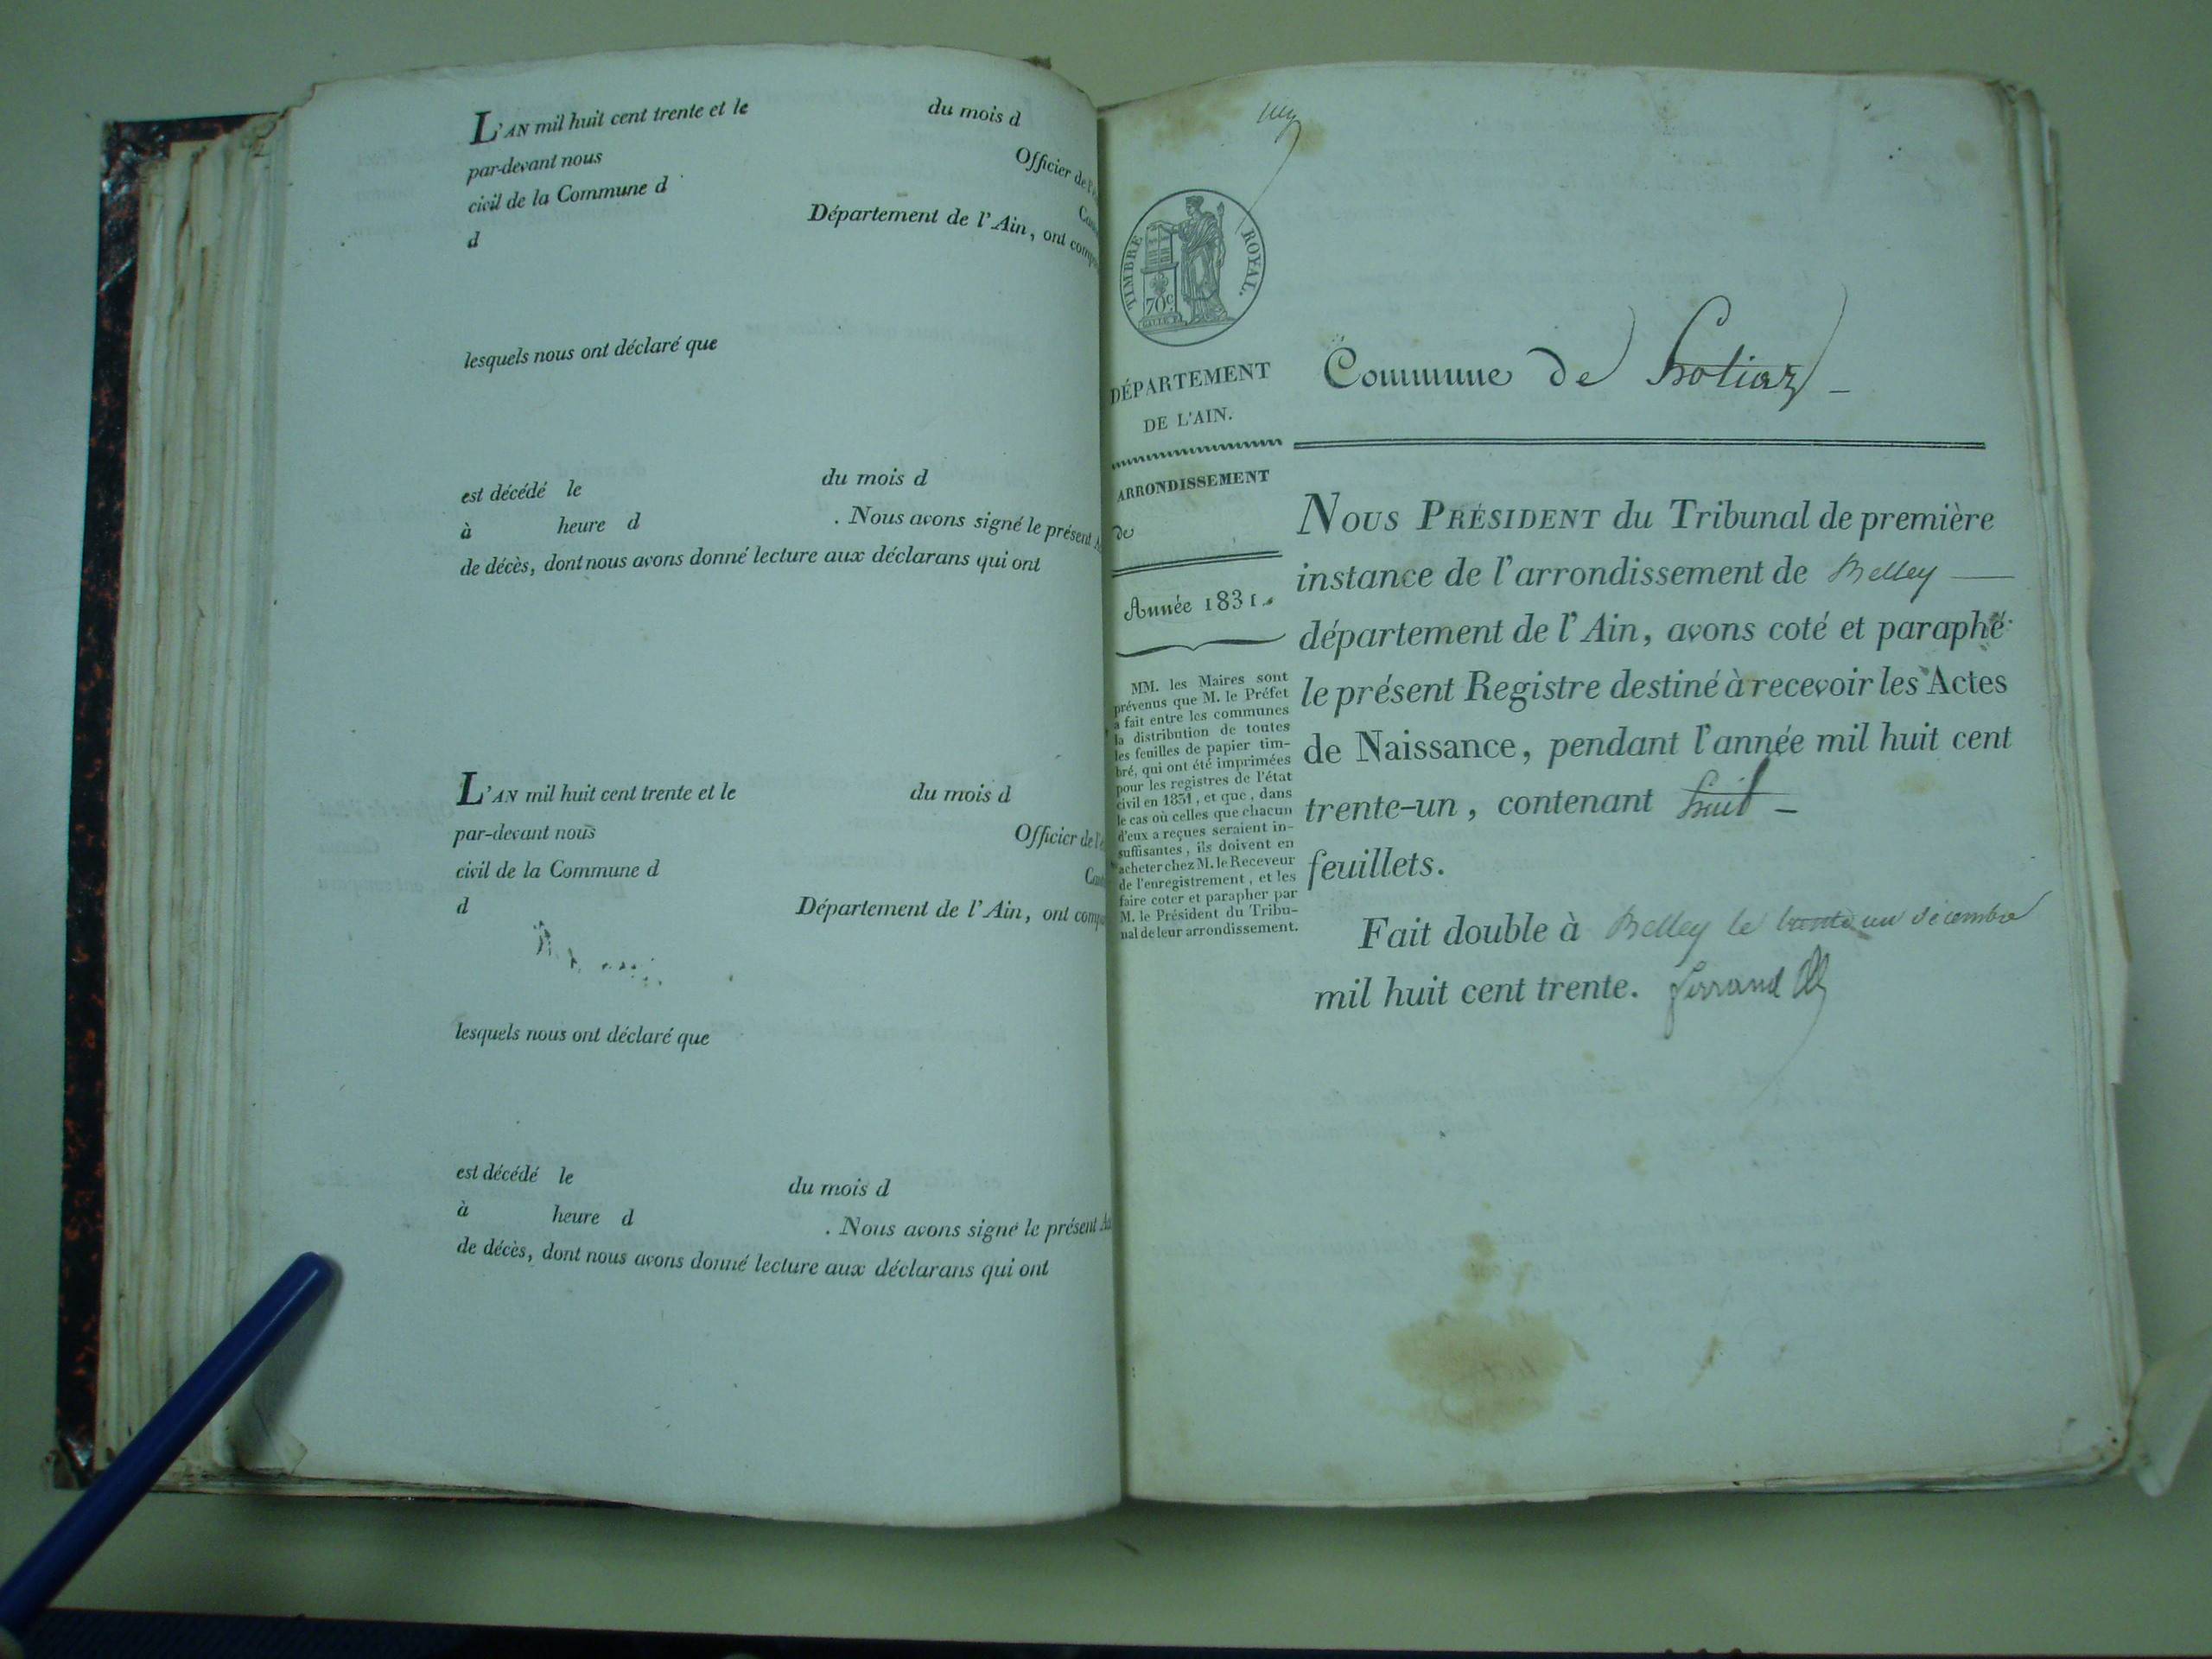 L'AN mil huit cent trente et le du mois d
par-devant nous Officier de l'é
civil de la Commune d
d Département de l'Ain, ont comp
lesquels nous ont déclaré que
est décédé le du mois d
à heure d . Nous avons signé le présent
de décès, dont nous avons donné lecture aux déclarans qui ont
L'AN mil huit cent trente et le du mois d
par-devant nous Officier de l'é
civil de la Commune d
d Département de l'Ain, ont comp
lesquels nous ont déclaré que
est décédé le du mois d
à heure d . Nous avons signé le présent
de décès, dont nous avons donné lecture aux déclarans qui ont
TIMBRE ROYAL.
70c
DÉPARTEMENT
DE L'AIN.
ARRONDISSEMENT
de
Année 1831.
MM. les Maires sont
prévenus que M. le Préfet
a fait entre les communes
la distribution de toutes
les feuilles de papier tim-
bré, qui ont été imprimées
pour les registres de l'état
civil en 1831, et que, dans
le cas où celles que chacun
d'eux a reçues seraient in-
suffisantes, ils doivent en
acheter chez M. le Receveur
de l'enregistrement, et les
faire coter et parapher par
M. le Président du Tribu-
nal de leur arrondissement.
Commune de
NOUS PRÉSIDENT du Tribunal de première
instance de l'arrondissement de Belley
département de l'Ain, avons coté et paraphé
le présent Registre destiné à recevoir les Actes
de Naissance, pendant l'année mil huit cent
trente-un, contenant huit
feuillets.
Fait double à Belley le trente un décembre
mil huit cent trente.